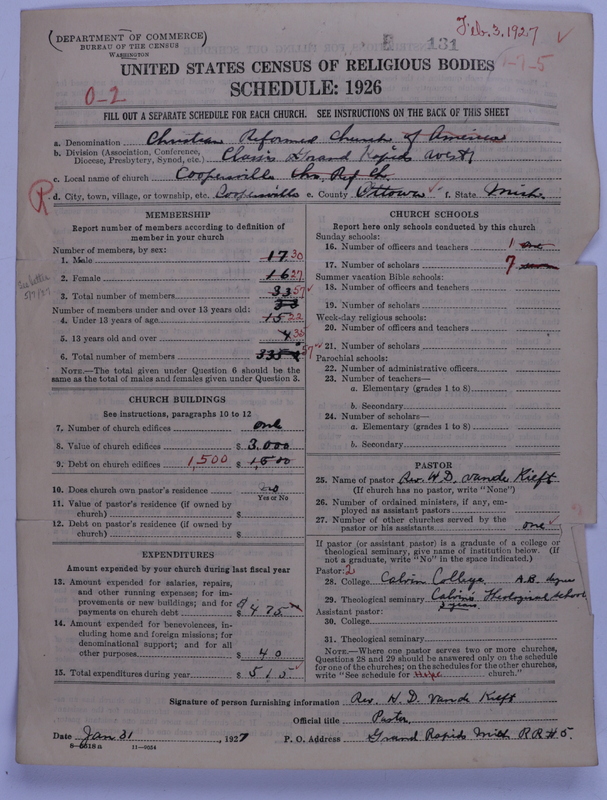 Feb. 3, 1927
(DEPARTMENT OF COMMERCE)
BUREAU OF THE CENSUS
WASHINGTON
131
UNITED STATES CENSUS OF RELIGIOUS BODIES
SCHEDULE: 1926
0-2
FILL OUT A SEPARATE SCHEDULE FOR EACH CHURCH. SEE INSTRUCTIONS ON THE BACK OF THIS SHEET
a. Denomination Christian Reformed Church of America
b. Division (Association, Conference, Diocese, Presbytery, Synod, etc.) Classis Grand Rapids West
c. Local name of church Coopersville Chr. Ref. Ch.
d. City, town, village, or township, etc. Coopersville e. County Ottawa f. State Mich.
MEMBERSHIP
Report number of members according to definition of
member in your church
Number of members, by sex:
1. Male 17 30
2. Female 16 27
3. Total number of members 33 57
Number of members under and over 13 years old:
4. Under 13 years of age 15 22
5. 13 years old and over 35
6. Total number of members 57
NOTE.—The total given under Question 6 should be
same as the total of males and females given under Question 3.
CHURCH BUILDINGS
See instructions, paragraphs 10 to 12
7. Number of church edifices one
8. Value of church edifices $ 3,000
9. Debt on church edifices 1,500 $ 1500
10. Does church own pastor's residence no
Yes or No
11. Value of pastor's residence (if owned by
church) $
12. Debt on pastor's residence (if owned by
church) $
EXPENDITURES
Amount expended by your church during last fiscal year
13. Amount expended for salaries, repairs,
and other running expenses; for im-
provements or new buildings; and for
payments on church debt $ 475
14. Amount expended for benevolences, in-
cluding home and foreign missions; for
denominational support; and for all
other purposes $ 40
15. Total expenditures during year $ 515
CHURCH SCHOOLS
Report here only schools conducted by this church
Sunday schools:
16. Number of officers and teachers 1 one
17. Number of scholars 7
Summer vacation Bible schools:
18. Number of officers and teachers
19. Number of scholars
Week-day religious schools:
20. Number of officers and teachers
21. Number of scholars
Parochial schools:
22. Number of administrative officers
23. Number of teachers—
a. Elementary (grades 1 to 8)
b. Secondary
24. Number of scholars—
a. Elementary (grades 1 to 8)
b. Secondary
PASTOR
25. Name of pastor Rev. H. D. Vande Kieft
(If church has no pastor, write "None")
26. Number of ordained ministers, if any, em-
ployed as assistant pastors
27. Number of other churches served by the
pastor or his assistants one
If pastor (or assistant pastor) is a graduate of a college or
theological seminary, give name of institution below. (If
not a graduate, write "No" in the space indicated.)
Pastor: 2
28. College Calvin College A.B. degree
29. Theological seminary Calvin's Theological School
3 years
Assistant pastor:
30. College
31. Theological seminary
NOTE.—Where one pastor serves two or more churches,
Questions 28 and 29 should be answered only on the schedule
for one of the churches; on the schedules for the other churches,
write "See schedule for Hope church."
Signature of person furnishing information Rev. H. D. Vande Kieft
Official title Pastor
Date Jan 31, 1927 P. O. Address Grand Rapids Mich R R # 5.
8-6518 a 11-9054